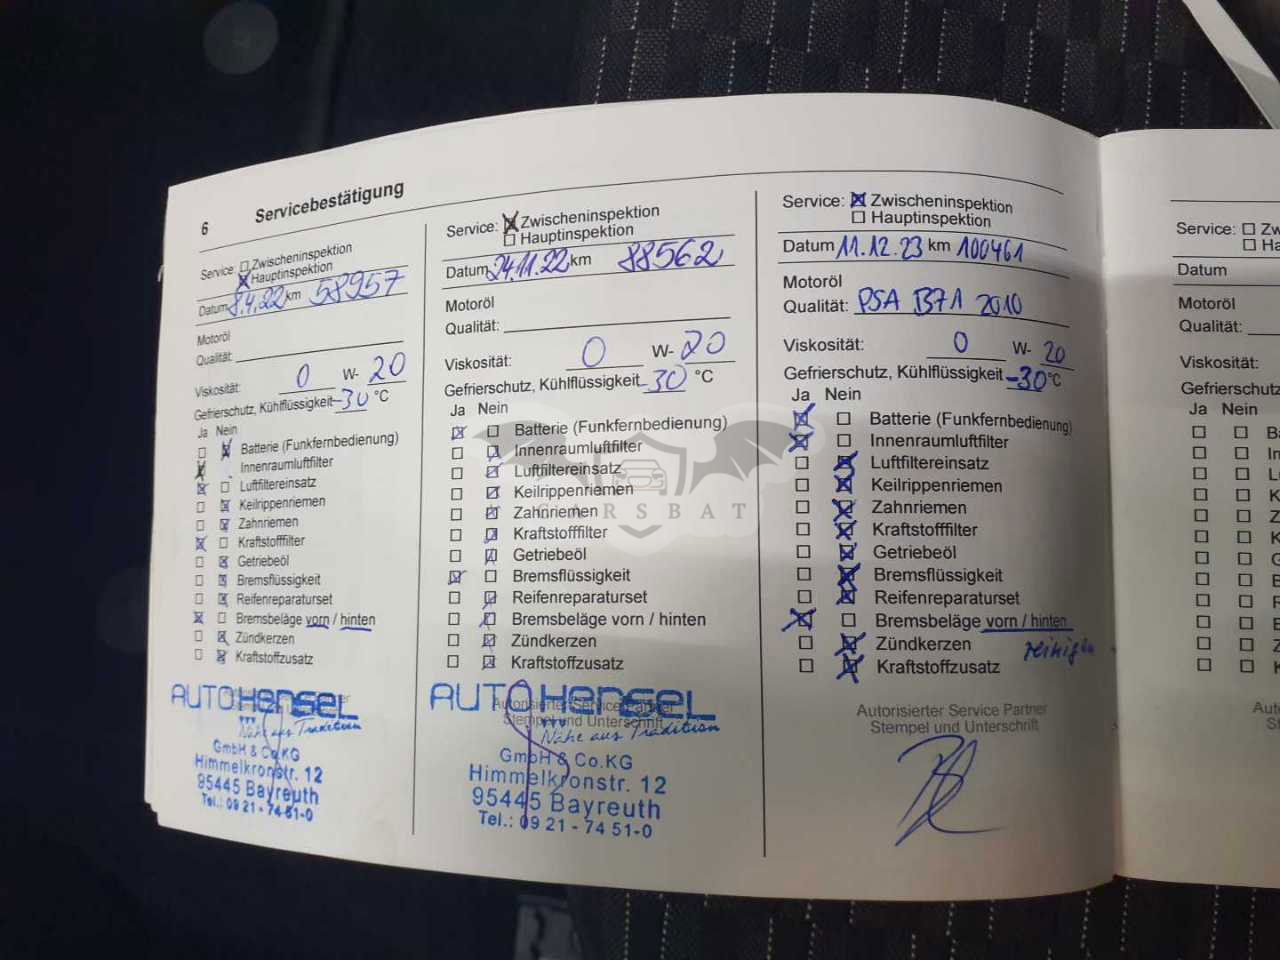 6 Servicebestätigung
Service: Zwischeninspektion
Hauptinspektion
Datum 8.4.22 km 58957
Motoröl
Qualität:
Viskosität: 0 W- 20
Gefrierschutz, Kühlflüssigkeit -30 °C
Ja Nein
Batterie (Funkfernbedienung)
Innenraumluftfilter
Luftfiltereinsatz
Keilrippenriemen
Zahnriemen
Kraftstofffilter
Getriebeöl
Bremsflüssigkeit
Reifenreparaturset
Bremsbeläge vorn / hinten
Zündkerzen
Kraftstoffzusatz
AUTO Hensel
Nähe aus Tradition
GmbH & Co.KG
Himmelkronstr. 12
95445 Bayreuth
Tel.: 09 21 - 74 51-0
Service: Zwischeninspektion
Hauptinspektion
Datum 24.11.22 km 88562
Motoröl
Qualität:
Viskosität: 0 W- 20
Gefrierschutz, Kühlflüssigkeit -30 °C
Ja Nein
Batterie (Funkfernbedienung)
Innenraumluftfilter
Luftfiltereinsatz
Keilrippenriemen
Zahnriemen
Kraftstofffilter
Getriebeöl
Bremsflüssigkeit
Reifenreparaturset
Bremsbeläge vorn / hinten
Zündkerzen
Kraftstoffzusatz
Autorisierter Service Partner
Stempel und Unterschrift
AUTO Hensel
Nähe aus Tradition
GmbH & Co.KG
Himmelkronstr. 12
95445 Bayreuth
Tel.: 09 21 - 74 51-0
Service: Zwischeninspektion
Hauptinspektion
Datum 11.12.23 km 100461
Motoröl
Qualität: PSA B71 2010
Viskosität: 0 W- 20
Gefrierschutz, Kühlflüssigkeit -30 °C
Ja Nein
Batterie (Funkfernbedienung)
Innenraumluftfilter
Luftfiltereinsatz
Keilrippenriemen
Zahnriemen
Kraftstofffilter
Getriebeöl
Bremsflüssigkeit
Reifenreparaturset
Bremsbeläge vorn / hinten
Zündkerzen reinigen
Kraftstoffzusatz
Autorisierter Service Partner
Stempel und Unterschrift
Service: Zw
Ha
Datum
Motoröl
Qualität:
Viskosität:
Gefrierschutz
Ja Nein
CARSBAT